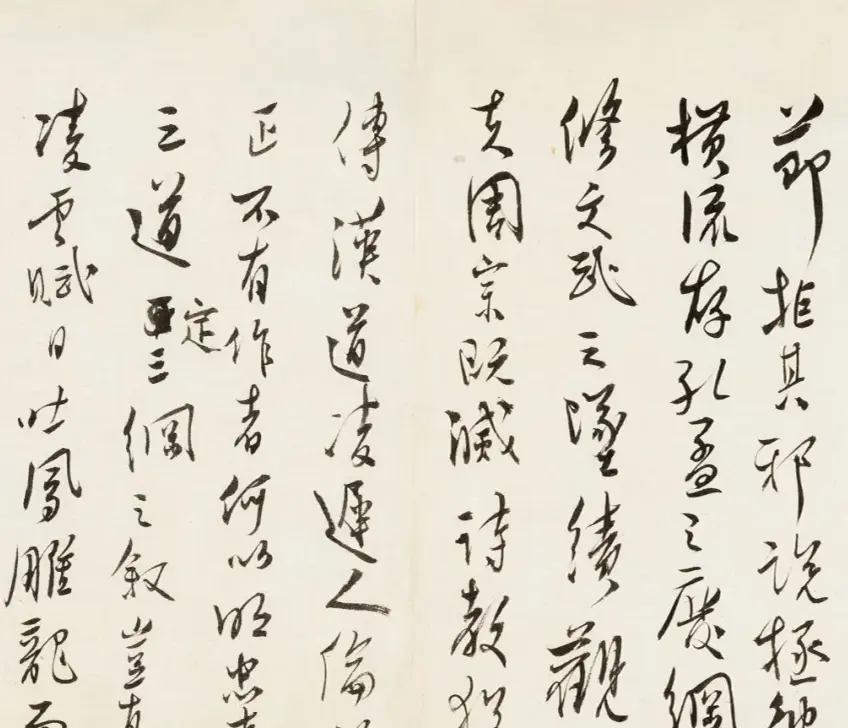 節拒其邪說拯
橫流存孔孟之廢綱
修文武之墜績觀
克周宗既滅詩教猶
傳漢道凌遲人倫
正不有作者何以明忠
三道定三綱之敘豈
凌雲賦日吐鳳雕龍而